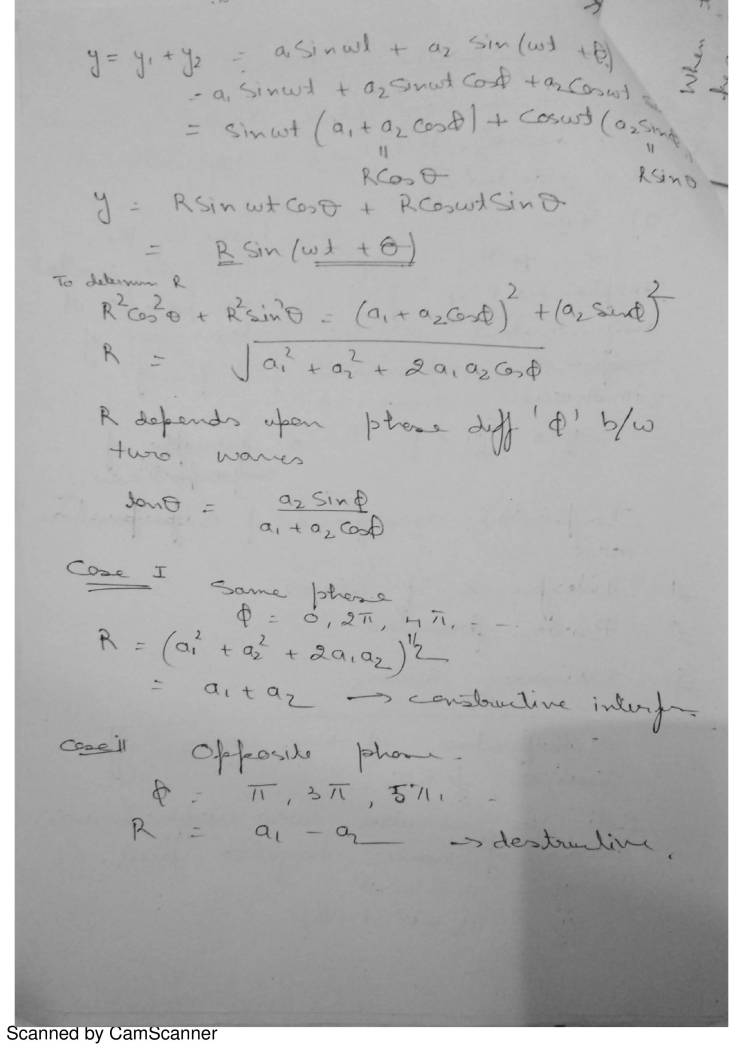 When
y = y₁ + y₂ = a₁ Sin ωt + a₂ sin (ωt + φ)
= a₁ Sin ωt + a₂ Sin ωt Cos φ + a₂ Cos ωt
= Sin ωt (a₁ + a₂ Cos φ) + Cos ωt (a₂ Sin φ
॥ ॥
R Cos θ R Sin θ
y = R Sin ωt Cos θ + R Cos ωt Sin θ
= R Sin (ωt + θ)
To determin R
R² Cos² θ + R² Sin² θ = (a₁ + a₂ Cos φ)² + (a₂ Sin φ)²
R = √a₁² + a₂² + 2 a₁ a₂ Cos φ
R depends upon phase diff 'φ' b/w
two. waves
tan θ = a₂ Sin φ / a₁ + a₂ Cos φ
Case I Same phase
φ = 0, 2π, 4π, - -
R = (a₁² + a₂² + 2a₁a₂)^1/2
= a₁ + a₂ → constructive interfr.
Case II Opposite phase -
φ = π, 3π, 5π, -
R = a₁ - a₂ → destructive.
Scanned by CamScanner